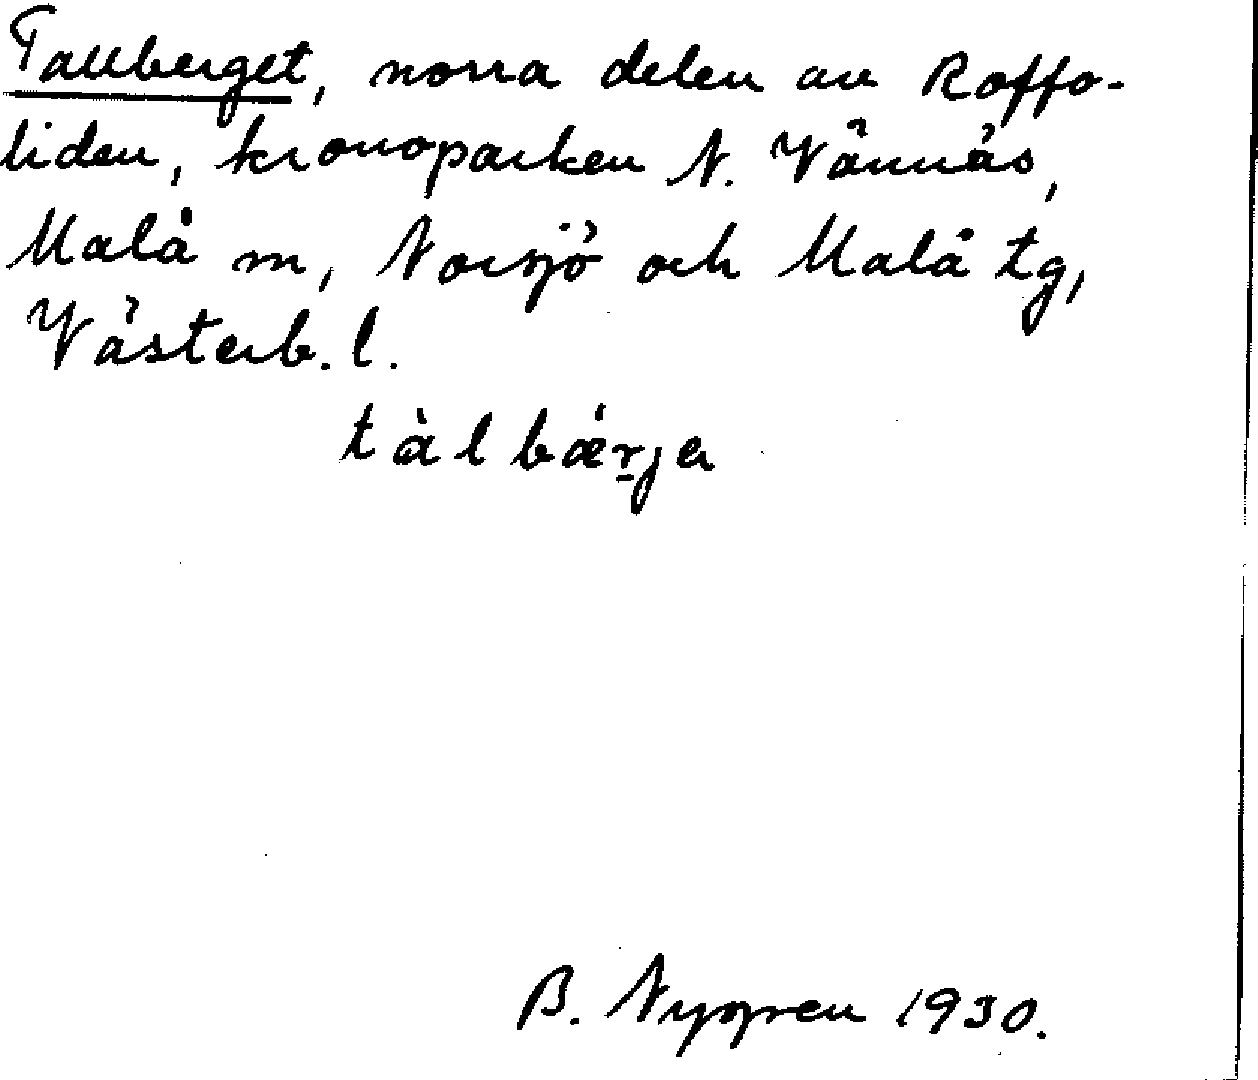 Tallberget, norra delen av Roffo-
liden, kronoparken N. Vännäs,
Malå sn, Norsjö och Malå tg,
Västerb. l.
tàlbær̠ja
B. Nygren 1930.